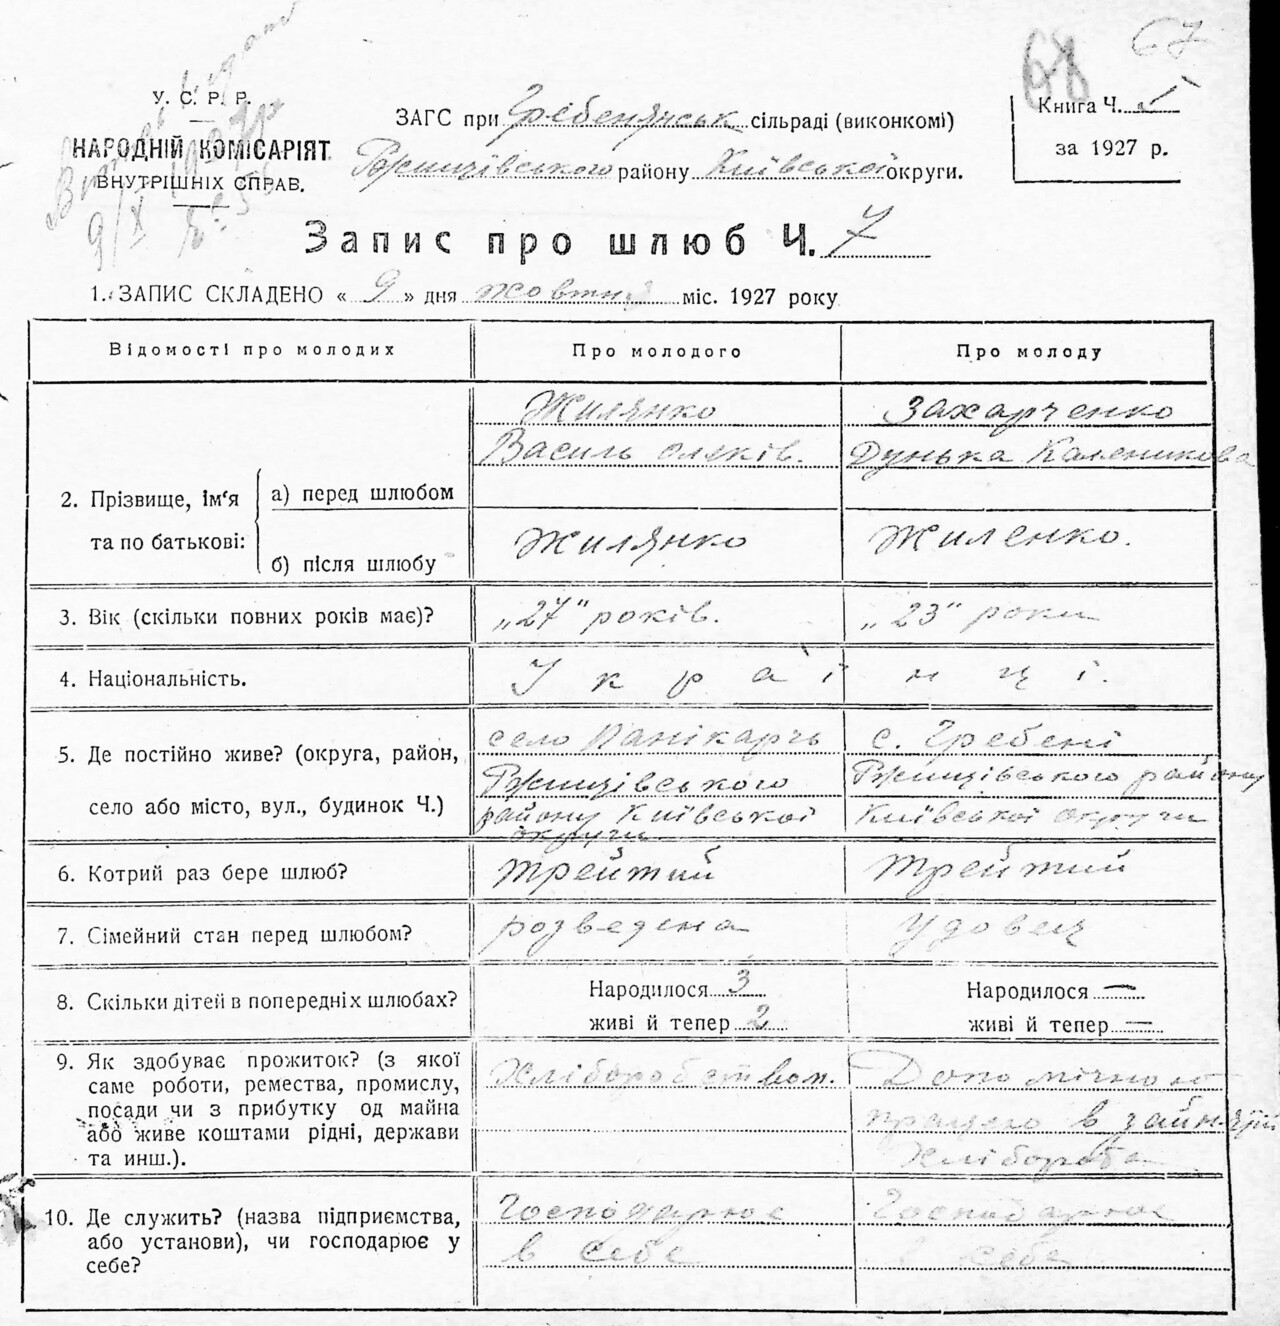 68 67
У. С. Р. Р.
НАРОДНІЙ КОМІСАРІЯТ
ВНУТРІШНІХ СПРАВ.
9/X
ЗАГС при Гребенянськ сільраді (виконкомі)
Ржищівського району Київської округи.
Книга Ч. 1
за 1927 р.
Запис про шлюб Ч. 7
1. ЗАПИС СКЛАДЕНО « 9 » дня жовтня міс. 1927 року
Відомості про молодих Про молодого Про молоду
2. Прізвище, Ім'я та по батькові:
а) перед шлюбом
Жилянко Захарченко
Василь Дунька Каленикова
б) після шлюбу
Жилянко Жиленко.
3. Вік (скільки повних років має)? „27" років. „23" роки
4. Національність. Українці.
5. Де постійно живе? (округа, район,
село або місто, вул., будинок Ч.)
село Панікарчь с. Гребені
Ржищівського Ржищівського району
району Київської Київської округи
округи
6. Котрий раз бере шлюб? трейтий трейтий
7. Сімейний стан перед шлюбом? розведена удовец
8. Скільки дітей в попередніх шлюбах? Народилося 3 Народилося —
живі й тепер 2 живі й тепер —
9. Як здобуває прожиток? (з якої
саме роботи, ремества, промислу,
посади чи з прибутку од майна
або живе коштами рідні, держави
та инш.).
Хліборобством. Допомічною
працею в зайняцій
Хлібороба
10. Де служить? (назва підприємства,
або установи), чи господарює у
себе?
Господарює Господарює
в себе в себе